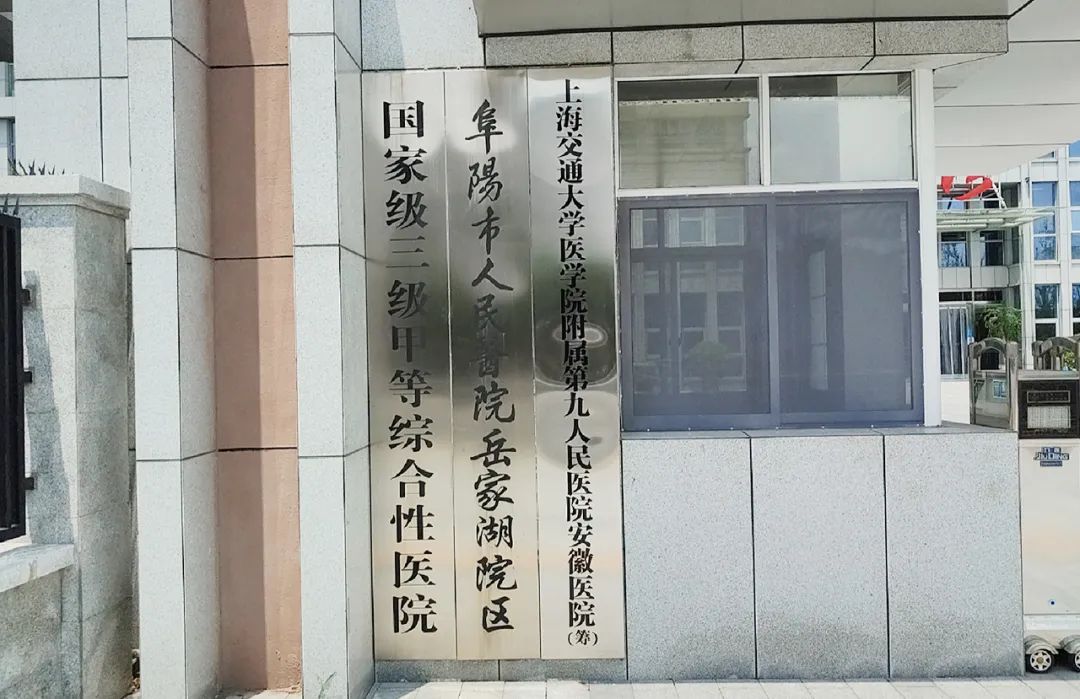 上海交通大学医学院附属第九人民医院安徽医院(筹)
阜陽市人民醫院岳家湖院区
国家级三级甲等综合性医院